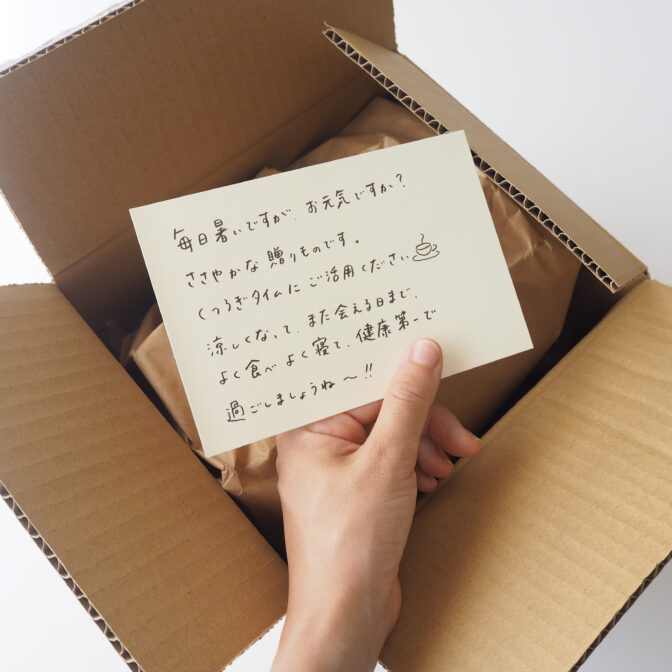 毎日暑いですが、お元気ですか？
ささやかな贈りものです。
くつろぎタイムにご活用ください
涼しくなって、また会える日まで、
よく食べよく寝て、健康第一で
過ごしましょうね〜!!